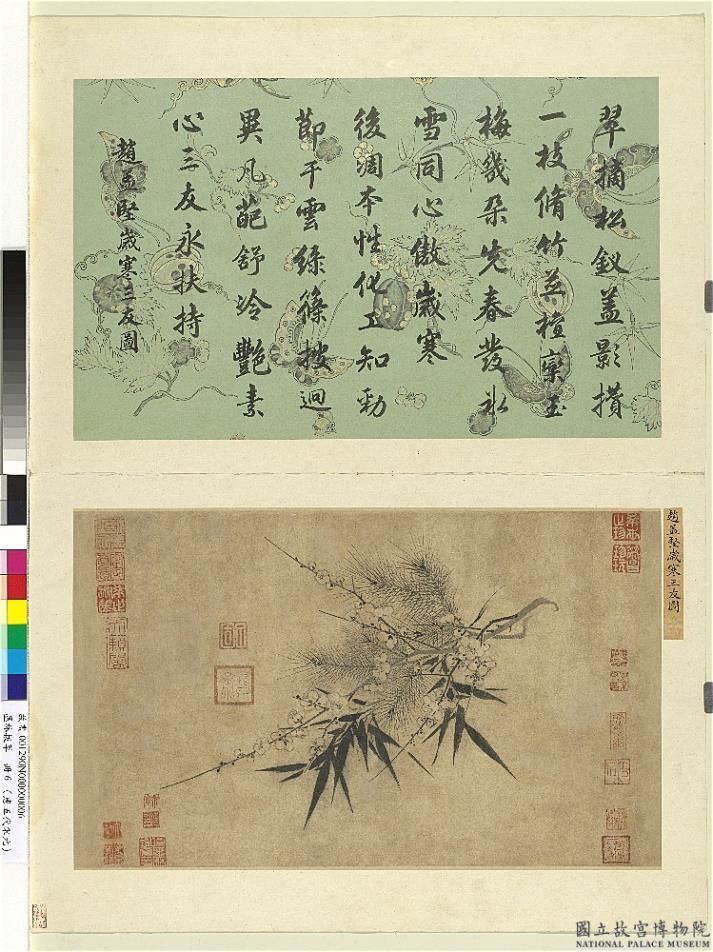 翠摘松釵蓋影攢
一枝脩竹並檀欒玉
梅幾朵先春發冰
雪同心傲歲寒
後凋本性化工知勁
節干雲綠篠披迥
異凡葩舒冷豔素
心三友永扶持
趙孟堅歲寒三友圖
趙孟堅歲寒三友圖
故畫 001290N000000006
墨林拔萃 冊6 (唐五代宋元)
國立故宮博物院
NATIONAL PALACE MUSEUM